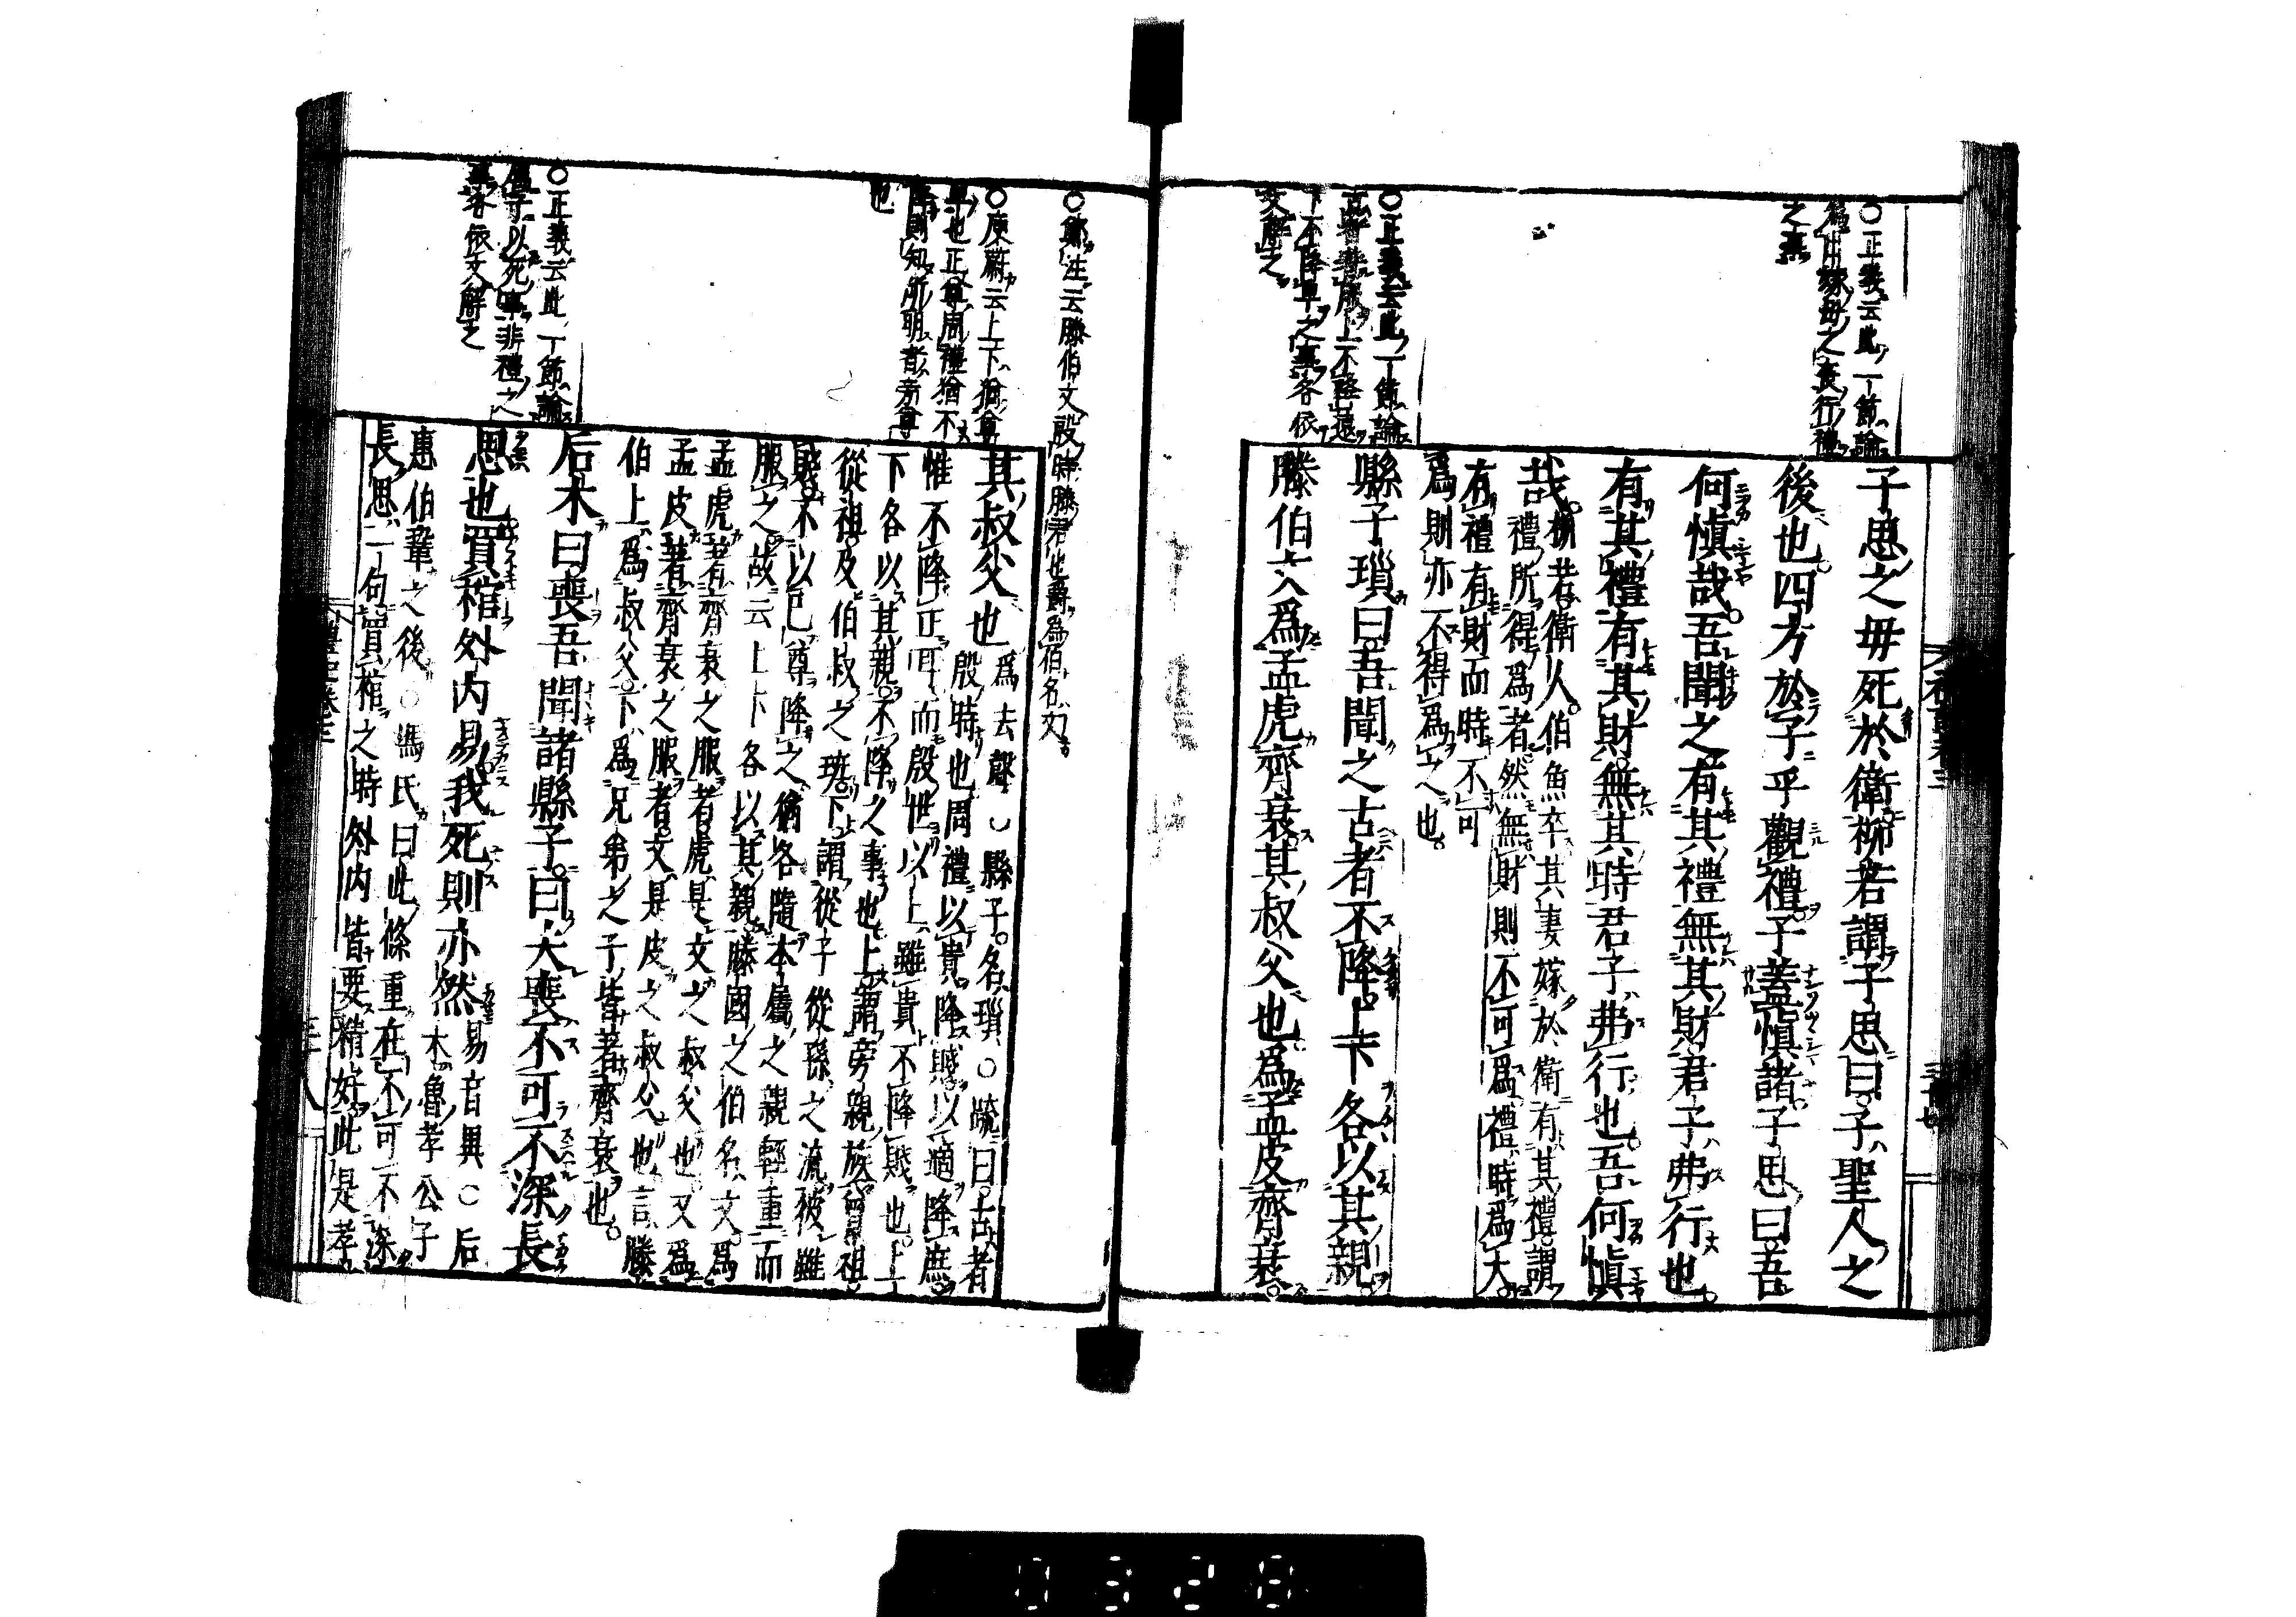 ○正義云此一節論
爲出嫁母之喪行禮
之事
子思之毋死於衛柳若謂子思曰子聖人之
後也四方於子乎觀禮子蓋愼諸子思曰吾
何愼哉吾聞之有其禮無其財君子弗行也
有其禮有其財無其時君子弗行也吾何愼
哉
柳若衛人伯魚卒其妻嫁於衛有其禮謂
禮所得爲者然無財則不可爲禮時爲大
有禮有財而時不可
爲則亦不得爲之也
○正義云此一節論
古者著服上不降遠
下不降卑之事各依
文解之
縣子瑣曰吾聞之古者不降上下各以其親
滕伯文爲孟虎齊衰其叔父也爲孟皮齊衰
○鄭注云滕伯文殷時滕君也爵爲伯名文
○庾蔚云上下猶尊
卑也正尊周禮猶不
降則知所明者旁尊
也
其叔父也
爲去聲○縣子名瑣○疏曰古者
殷時也周禮以貴降賤以適降庶
惟不降正耳而殷世以上雖貴不降賤也上
下各以其親不降之事也上謂旁親族曾祖
從祖及伯叔之班下謂從子從孫之流彼雖
賤不以己尊降之猶各隨本屬之親輕重而
服之故云上下各以其親滕國之伯名文爲
孟虎著齊衰之服者虎是文之叔父也又爲
孟皮著齊衰之服者文是皮之叔父也言滕
伯上爲叔父下爲兄弟之子皆著齊衰也
○正義云此一節論
屬子以死事非禮之
事各依文解之
后木曰喪吾聞諸縣子曰夫喪不可不深長
思也買棺外内易我死則亦然
易音異○后
木魯孝公子
惠伯鞏之後○馮氏曰此條重在不可不深
長思一句買棺之時外内皆要精好此是孝
禮記卷三
三十八